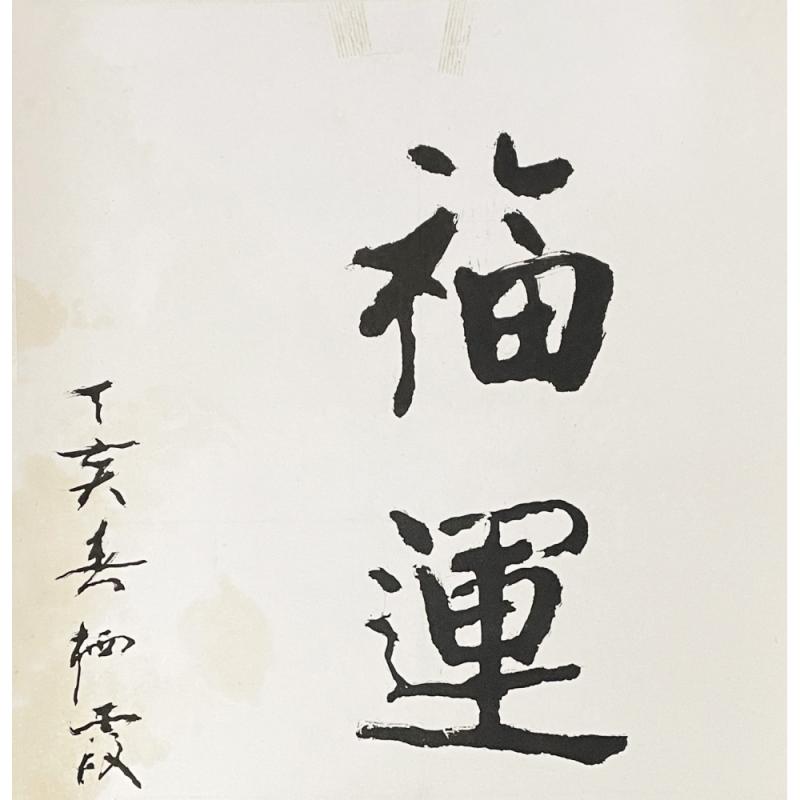 福運
丁亥春栖霞